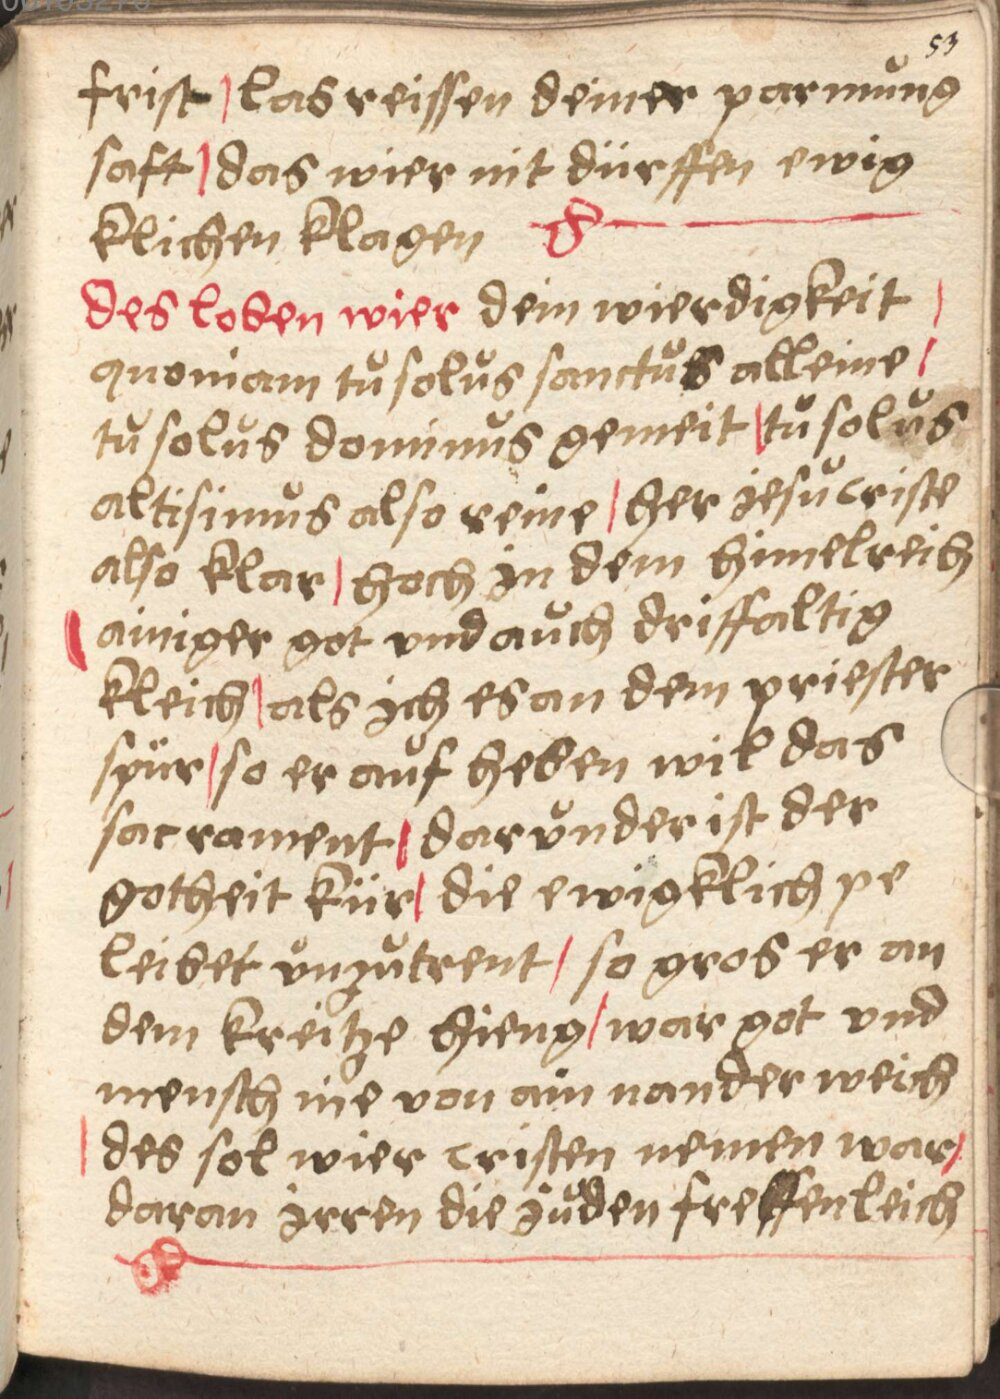 53
frist | las reissen deiner parmůng
saft | das wier nit dürffen ewig
klichen klagen
des loben wier dein wierdigkeit |
quoniam tů solůs sanctůs alleine |
tů solůs dominůs gemeit | tů solůs
altisimůs also reine | her jesů criste
also klar | hoch jn dem himelreich
| ainiger got vnd aůch driffaltig
kleich | als jch es an dem priester
spür | so er aůf heben wil das
sacrament | darůnder ist der
gotheit kür | die ewigklich pe
leibet ůnzůtrent | so gros er an
dem kreitze hieng | war got vnd
mensch nie von ain nander weich
| des sol wier cristen nemen war |
daran jrren die jůden freffenleich